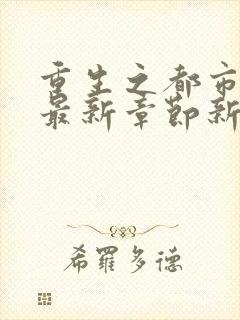 重生之都市
最新章节新
希罗多德